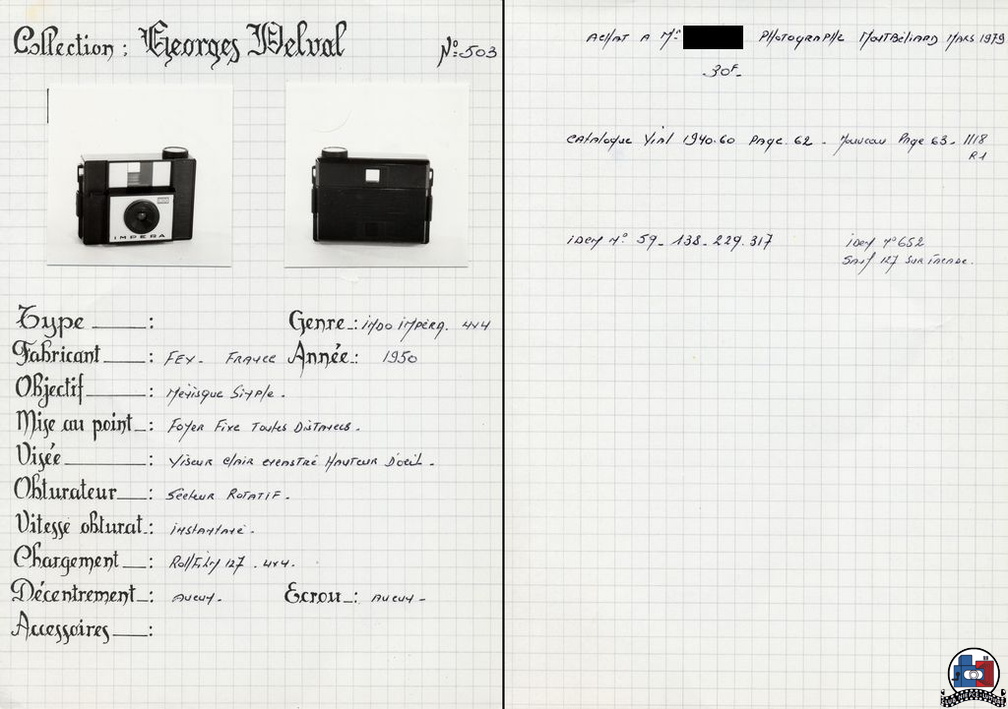 Collection : Georges Delval
N°:503
IMPERA
Type : 
Genre : indo impera. 4x4
Fabricant : FEX - FRANCE Année : 1950
Objectif : Menisque Simple.
Mise au point : Foyer Fixe Toutes Distances.
Visée : Viseur Clair encastré Hauteur D'oeil.
Obturateur : Secteur Rotatif.
Vitesse obturat : instantané.
Chargement : Roll Film 127. 4x4.
Décentrement : Aucun. Ecrou : Aucun -
Accessoires :
ACHAT A Mr PHOTOGRAPHE MONTBÉLIARD MARS 1979
30F.
Catalogue Vial 1940.60 Page. 62 - Nouveau Page 63 - 1118
R1
iDem N° 59 - 138 - 229. 317
iDem n° 652
Sauf 127 sur